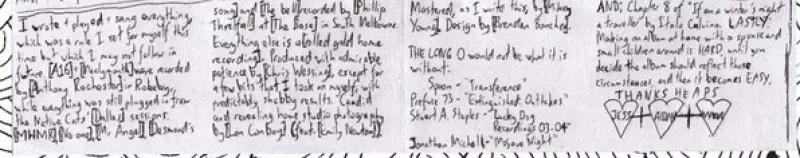 I wrote + played + sang everything,
which was a rule I set for myself this
time but which I may not follow in
future. [A16] + [Polygontk] were recorded
by [Anthony Rochester] in Rokeby,
while everything was still plugged in from
the Native Cats' [Dallas] sessions.
[MHMR], [No one], [M, Angel], [Desmond's
song] and [the bell] recorded by [Phillip
Threlfall] at [The Base] in South Melbourne.
Everything else is a [alled gold home
recording]. Produced with admirable
patience by [Chris Wessing], except for
a few bits that I took on myself, with
predictably shabby results. Candid
and revealing home studio photography
by [Len Conboy] (feat. [Emily Newton]).
Mastered, as I write this, by [Mikey
Young]. Design by [Brenden Bonched].
THE LONG O would not be what it is
without:
Spoon - "Transference"
Prefuse 73 - "Extinguished: Outtakes"
Stuart A. Staples - "Lucky Dog
Recordings 03-04"
Jonathan Michell - "Mojave Night"
AND: Chapter 8 of "If on a winter's night
a traveller" by Italo Calvino. LASTLY:
Making an album at home with a spouse and
small children around is HARD, until you
decide the album should reflect those
circumstances, and then it becomes EASY.
THANKS HEAPS
JESS +